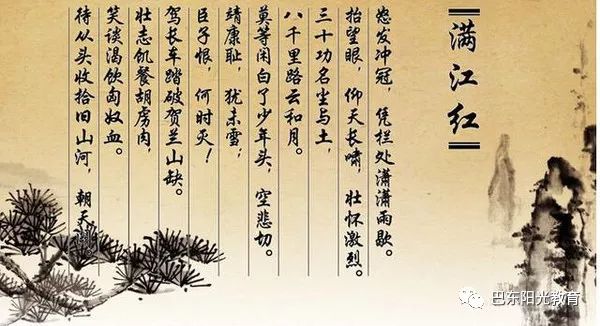 满江红
怒发冲冠，凭栏处潇潇雨歇。
抬望眼，仰天长啸，壮怀激烈。
三十功名尘与土，
八千里路云和月。
莫等闲白了少年头，空悲切。
靖康耻，犹未雪；
臣子恨，何时灭！
驾长车踏破贺兰山缺。
壮志饥餐胡虏肉，
笑谈渴饮匈奴血。
待从头收拾旧山河，朝天阙
巴东阳光教育